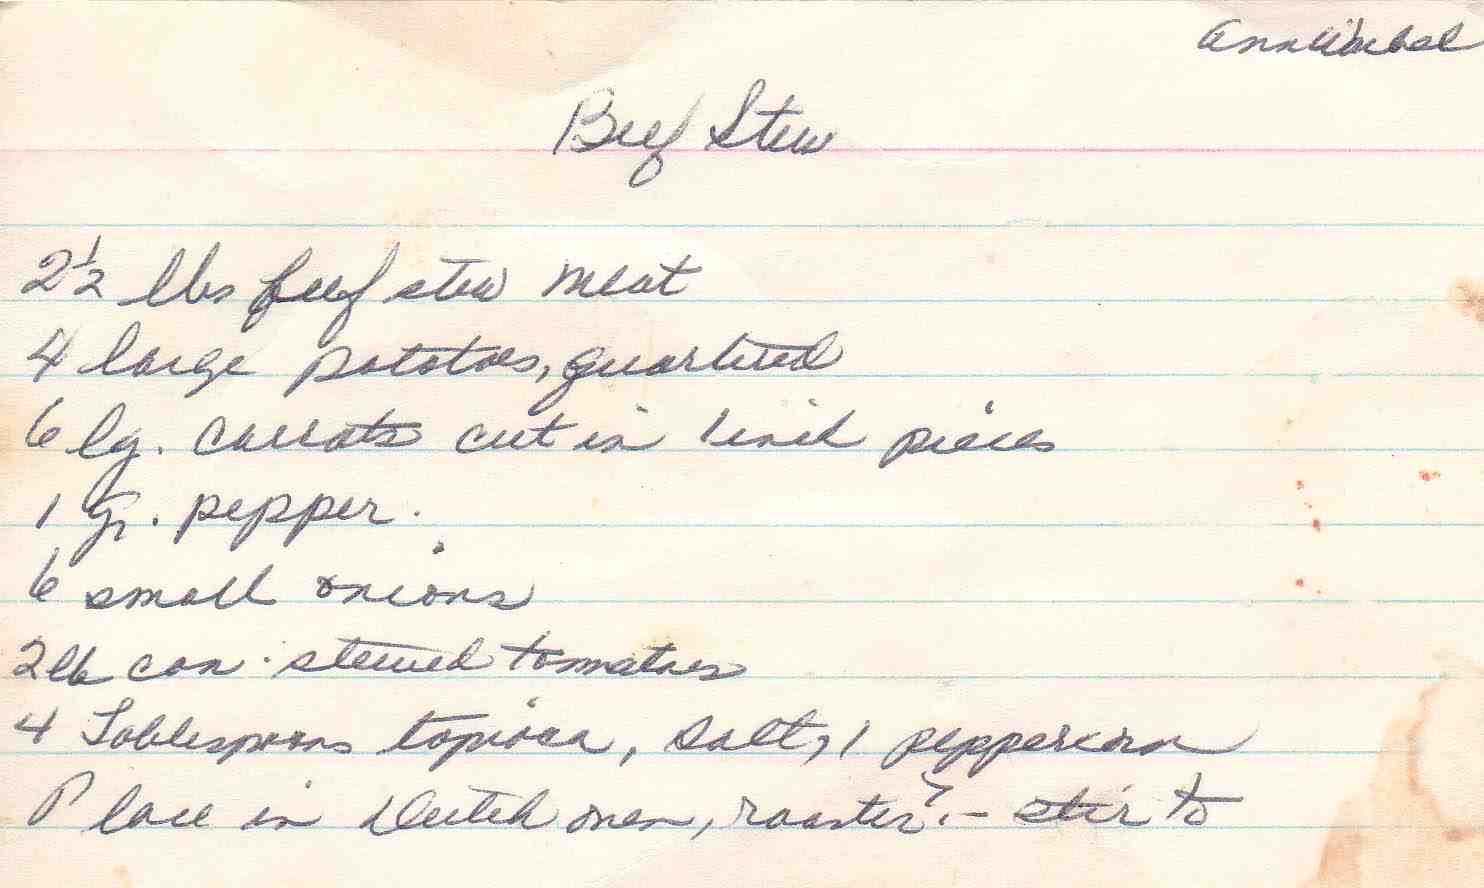 Beef Stew
2 1/2 lbs beef stew meat
4 large potatoes, quartered
6 lg. carrots cut in 1 inch pieces
1 gr. pepper.
6 small onions
2 lb can stewed tomatoes
4 Tablespoons tapioca, salt, 1 peppercorn
Place in Dutch oven, roaster, - stir to